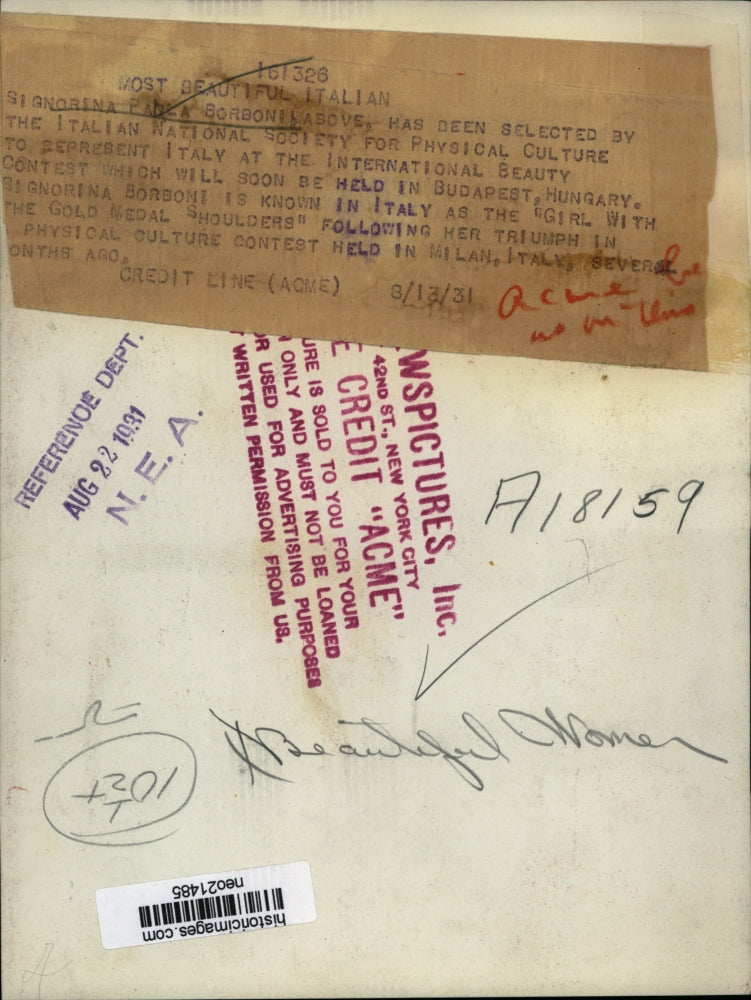 161326
MOST BEAUTIFUL ITALIAN
SIGNORINA PAOLA BORBONI, ABOVE, HAS BEEN SELECTED BY
THE ITALIAN NATIONAL SOCIETY FOR PHYSICAL CULTURE
TO REPRESENT ITALY AT THE INTERNATIONAL BEAUTY
CONTEST WHICH WILL SOON BE HELD IN BUDAPEST, HUNGARY.
SIGNORINA BORBONI IS KNOWN IN ITALY AS THE "GIRL WITH
THE GOLD MEDAL SHOULDERS" FOLLOWING HER TRIUMPH IN
PHYSICAL CULTURE CONTEST HELD IN MILAN, ITALY, SEVERAL
ONTHS AGO.
CREDIT LINE (ACME) 8/13/31
acme
REFERENCE DEPT.
AUG 22 1931
N. E. A.
WSPICTURES, Inc.
42ND ST., NEW YORK CITY
E CREDIT "ACME"
URE IS SOLD TO YOU FOR YOUR
ONLY AND MUST NOT BE LOANED
OR USED FOR ADVERTISING PURPOSES
WRITTEN PERMISSION FROM US.
A18159
Beautiful Women
historicimages.com
neo21485